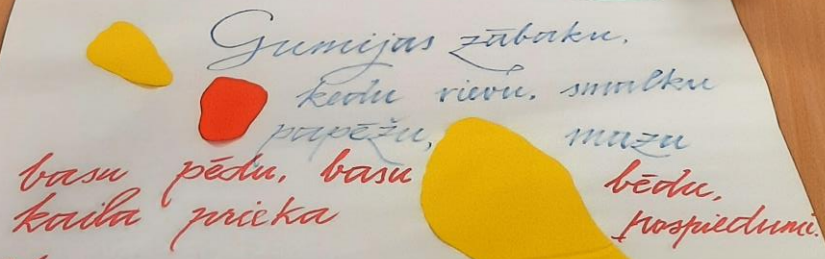 Gumijas zābaku,
kedu rievu, smalku
papēžu, mazu
basu pēdu, basu bēdu,
kaila prieka pospiedumi.